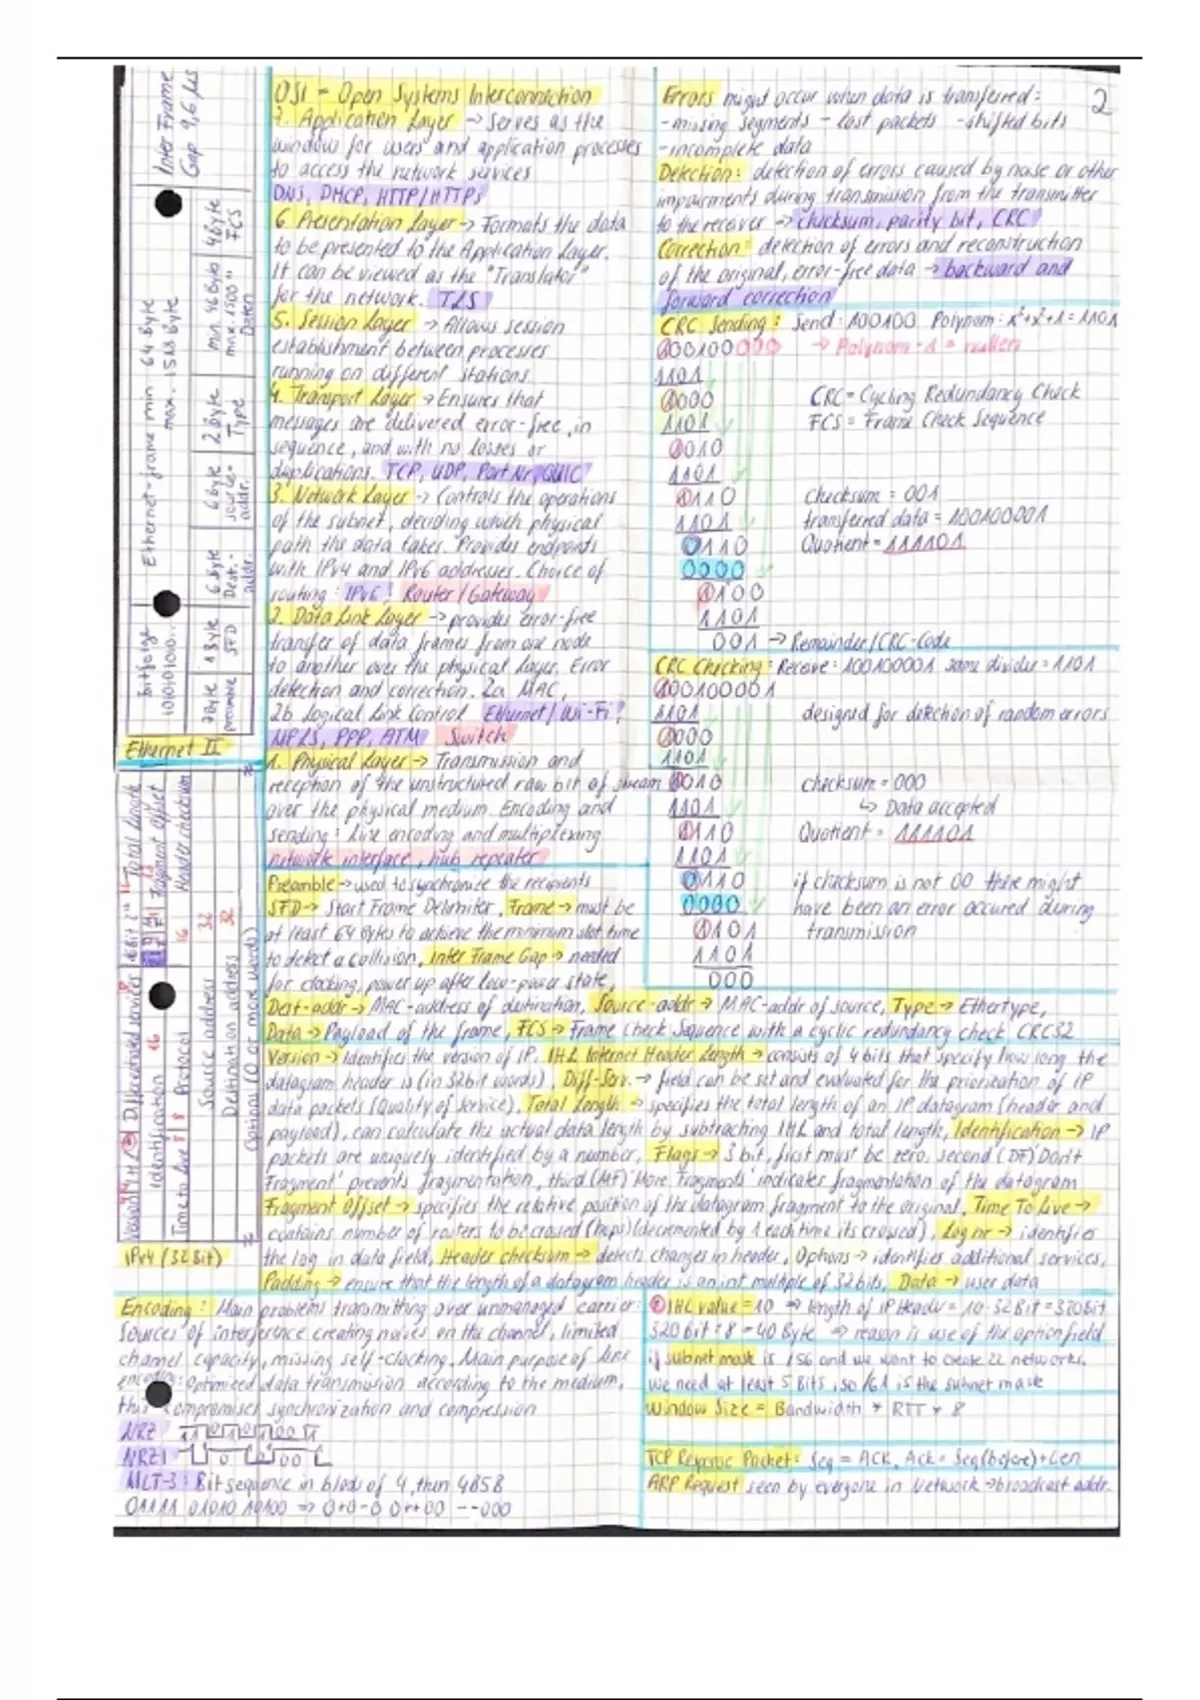 OSI - Open Systems Interconnection
7. Application Layer → Serves as the
window for users and application processes
to access the network services
DNS, DHCP, HTTP/HTTPS
6. Presentation Layer → Formats the data
to be presented to the Application Layer.
It can be viewed as the "Translator"
for the network. TLS
5. Session Layer → Allows session
establishment between processes
running on different stations
4. Transport Layer → Ensures that
messages are delivered error-free, in
sequence, and with no losses or
duplications. TCP, UDP, Port Nr, QUIC
3. Network Layer → Controls the operations
of the subnet, deciding which physical
path the data takes. Provides endpoints
with IPv4 and IPv6 addresses. Choice of
routing: IPv6! Router/Gateway
2. Data Link Layer → provides error-free
transfer of data frames from one node
to another over the physical layer. Error
detection and correction. 2a MAC,
2b Logical Link Control Ethernet/Wi-Fi!
MPLS, PPP, ATM Switch
1. Physical Layer → Transmission and
reception of the unstructured raw bit of stream
over the physical medium. Encoding and
sending: Line encoding and multiplexing
network interface, hub repeater
Errors might occur when data is transferred: 2
-missing segments - lost packets -shifted bits
-incomplete data
Detection: detection of errors caused by noise or other
impairments during transmission from the transmitter
to the receiver → checksum, parity bit, CRC
Correction: detection of errors and reconstruction
of the original, error-free data → backward and
forward correction
CRC Sending: Send: 100100 Polynom: x³+x²+1 = 1101
100100000 → Polynom -1 = nullen
1101
1000 CRC = Cycling Redundancy Check
1101 FCS = Frame Check Sequence
1010
1101
1110 checksum = 001
1101 transferred data = 100100001
0110 Quotient = 111101
0000
1100
1101
001 → Remainder/CRC-Code
CRC Checking: Receive: 100100001 same divider = 1101
100100001
1101 designed for detection of random errors
1000
1101
1010 checksum = 000
1101 ↳ Data accepted
1110 Quotient = 111101
1101
0110 if checksum is not 00 there might
0000 have been an error occured during
1101 transmission
1101
000
Inter Frame
Gap 9,6 µs
Ethernet-frame min 64 Byte
max. 1518 Byte
Bitfolge
101010100...
7Byte preamble
1Byte SFD
6Byte Dest.-addr.
6Byte source-addr.
2Byte Type
min. 46Byte max. 1500" Daten
4Byte FCS
Ethernet II
Preamble → used to synchronize the recipients
SFD → Start Frame Delimiter, Frame → must be
at least 64 Bytes to achieve the minimum slot time
to detect a collision, Inter Frame Gap → needed
for clocking, power up after low-power state,
Dest-addr → MAC-address of destination, Source-addr → MAC-addr of source, Type → Ethertype,
Data → Payload of the frame, FCS → Frame Check Sequence with a cyclic redundancy check CRC32
Total Length
Fragment offset
Header checksum
Differentiated services
Identification 16
Time to live 8 8 Protocol 16
Source address 32
Destination address 32
Options (0 or more words)
IPv4 (32Bit)
Version → Identifies the version of IP. IHL Internet Header Length → consists of 4 bits that specify how long the
datagram header is (in 32bit words), Diff-Serv. → field can be set and evaluated for the priorization of IP
data packets (Quality of Service), Total Length → specifies the total length of an IP datagram (header and
payload), can calculate the actual data length by subtracting IHL and total length, Identification → IP
packets are uniquely identified by a number, Flags → 3 bit, first must be zero, second (DF) 'Don't
Fragment' prevents fragmentation, third (MF) 'More Fragments' indicates fragmentation of the datagram
Fragment Offset → specifies the relative position of the datagram fragment to the original, Time To Live →
contains number of routers to be crossed (hops) (decremented by 1 each time its crossed), Log nr → identifies
the log in data field, Header checksum → detects changes in header, Options → identifies additional services,
Padding → ensure that the length of a datagram header is an int multiple of 32 bits, Data → user data
Encoding: Main problems transmitting over unmanaged carrier:
Sources of interference creating noises on the channel, limited
channel capacity, missing self-clocking. Main purpose of line
encoding: optimized data transmission according to the medium,
this compromises synchronization and compression
NRZ 11 0 1 0 1 00 11
NRZI
MLT-3: Bit sequence in blocks of 4, then 4B5B
01111 01010 10100 ⇒ 0+0-0 0++00 --000
IHL value = 10 ⇒ length of IP Header = 10 · 32Bit = 320Bit
320bit : 8 = 40 Byte ⇒ reason is use of the option field
if subnet mask is /56 and we want to create 22 networks.
We need at least 5 Bits, so /61 is the subnet mask
Window Size = Bandwidth * RTT * 8
TCP Response Packet: Seq = ACK, Ack = Seq(before)+Len
ARP Request seen by everyone in Network → broadcast addr.